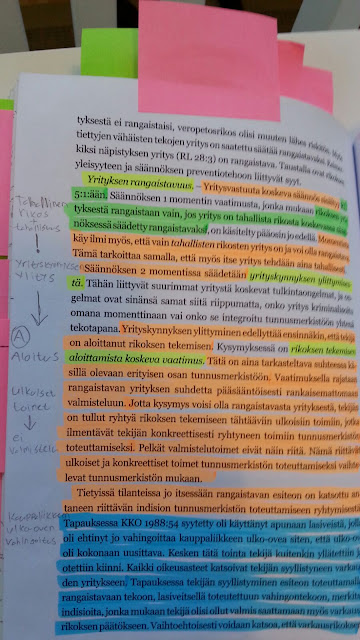 tyksestä ei rangaistaisi, veropetosrikos olisi muuten lähes
tiettyjen vähäisten tekojen yritys on saatettu säätää rangaistavaksi,
kiksi näpistyksen yritys (RL 28:3) on rangaistava. Taustalla ovat
yleisyyteen ja säännöksen preventiotehoon liittyvät syyt.
Yrityksen rangaistavuus. – Yritysvastuuta koskeva säännös sisältyy
5:1:ään. Säännöksen 1 momentin vaatimusta, jonka mukaan rikoksen
tyksestä rangaistaan vain, jos yritys on tahallista rikosta koskevassa
nöksessä säädetty rangaistavaksi, on käsitelty pääosin jo edellä.
käy ilmi myös, että vain tahallisten rikosten yritys on ja voi olla
Tämä tarkoittaa samalla, että myös itse yritys tehdään aina
Säännöksen 2 momentissa säädetään yrityskynnyksen
tä. Tähän liittyvät suurimmat yritystä koskevat tulkintaongelmat, ja
gelmat ovat sinänsä samat siitä riippumatta, onko yritys
omana momenttinaan vai onko se integroitu tunnusmerkistöön yhtenä
tekotapana. Yrityskynnyksen ylittyminen edellyttää ensinnäkin, että
on aloittanut rikoksen tekemisen. Kysymyksessä on rikoksen tekemisen
aloittamista koskeva vaatimus. Tätä on aina tarkasteltava suhteessa
sillä olevaan erityisen osan tunnusmerkistöön. Vaatimuksella rajataan
rangaistavan yrityksen suhdetta pääsääntöisesti rankaisemattomaan
valmisteluun. Jotta kysymys voisi olla rangaistavasta yrityksestä,
on tullut ryhtyä rikoksen tekemiseen tähtääviin ulkoisiin toimiin, jotka
ilmentävät tekijän konkreettisesti ryhtyneen toimiin tunnusmerkistön
toteuttamiseksi. Pelkät valmistelutoimet eivät näin riitä. Nämä riittävät
ulkoiset ja konkreettiset toimet tunnusmerkistön toteuttamiseksi
levat tunnusmerkistön mukaan.
Tietyissä tilanteissa jo itsessään rangaistavan esiteon on katsottu
taneen riittävän indision tunnusmerkistön toteuttamiseen ryhtymisestä.
Tapauksessa KKO 1988:54 syytetty oli käyttänyt apunaan lasiveistä, jolla
oli ehtinyt jo vahingoittaa kauppaliikkeen ulko-ovea siten, että
oli kokonaan uusittava. Kesken tätä tointa tekijä kuitenkin yllätettiin
otettiin kiinni. Kaikki oikeusasteet katsoivat tekijän syyllistyneen
den yritykseen. Tapauksessa tekijän syyllistyminen esiteon
rangaistavaan tekoon, lasiveitsellä toteutettuun vahingontekoon,
indisioita, jonka mukaan tekijä olisi ollut valmis saattamaan myös
rikoksen päätökseen. Vaihtoehtoisesti voidaan katsoa, että
Tahallinen
rikos
+
tahallisuus
Yrityskynnyksen
ylitys
A
Aloitus
Ulkoiset
toimet
ei
valmistelu
ulko-oven
vahingoitus